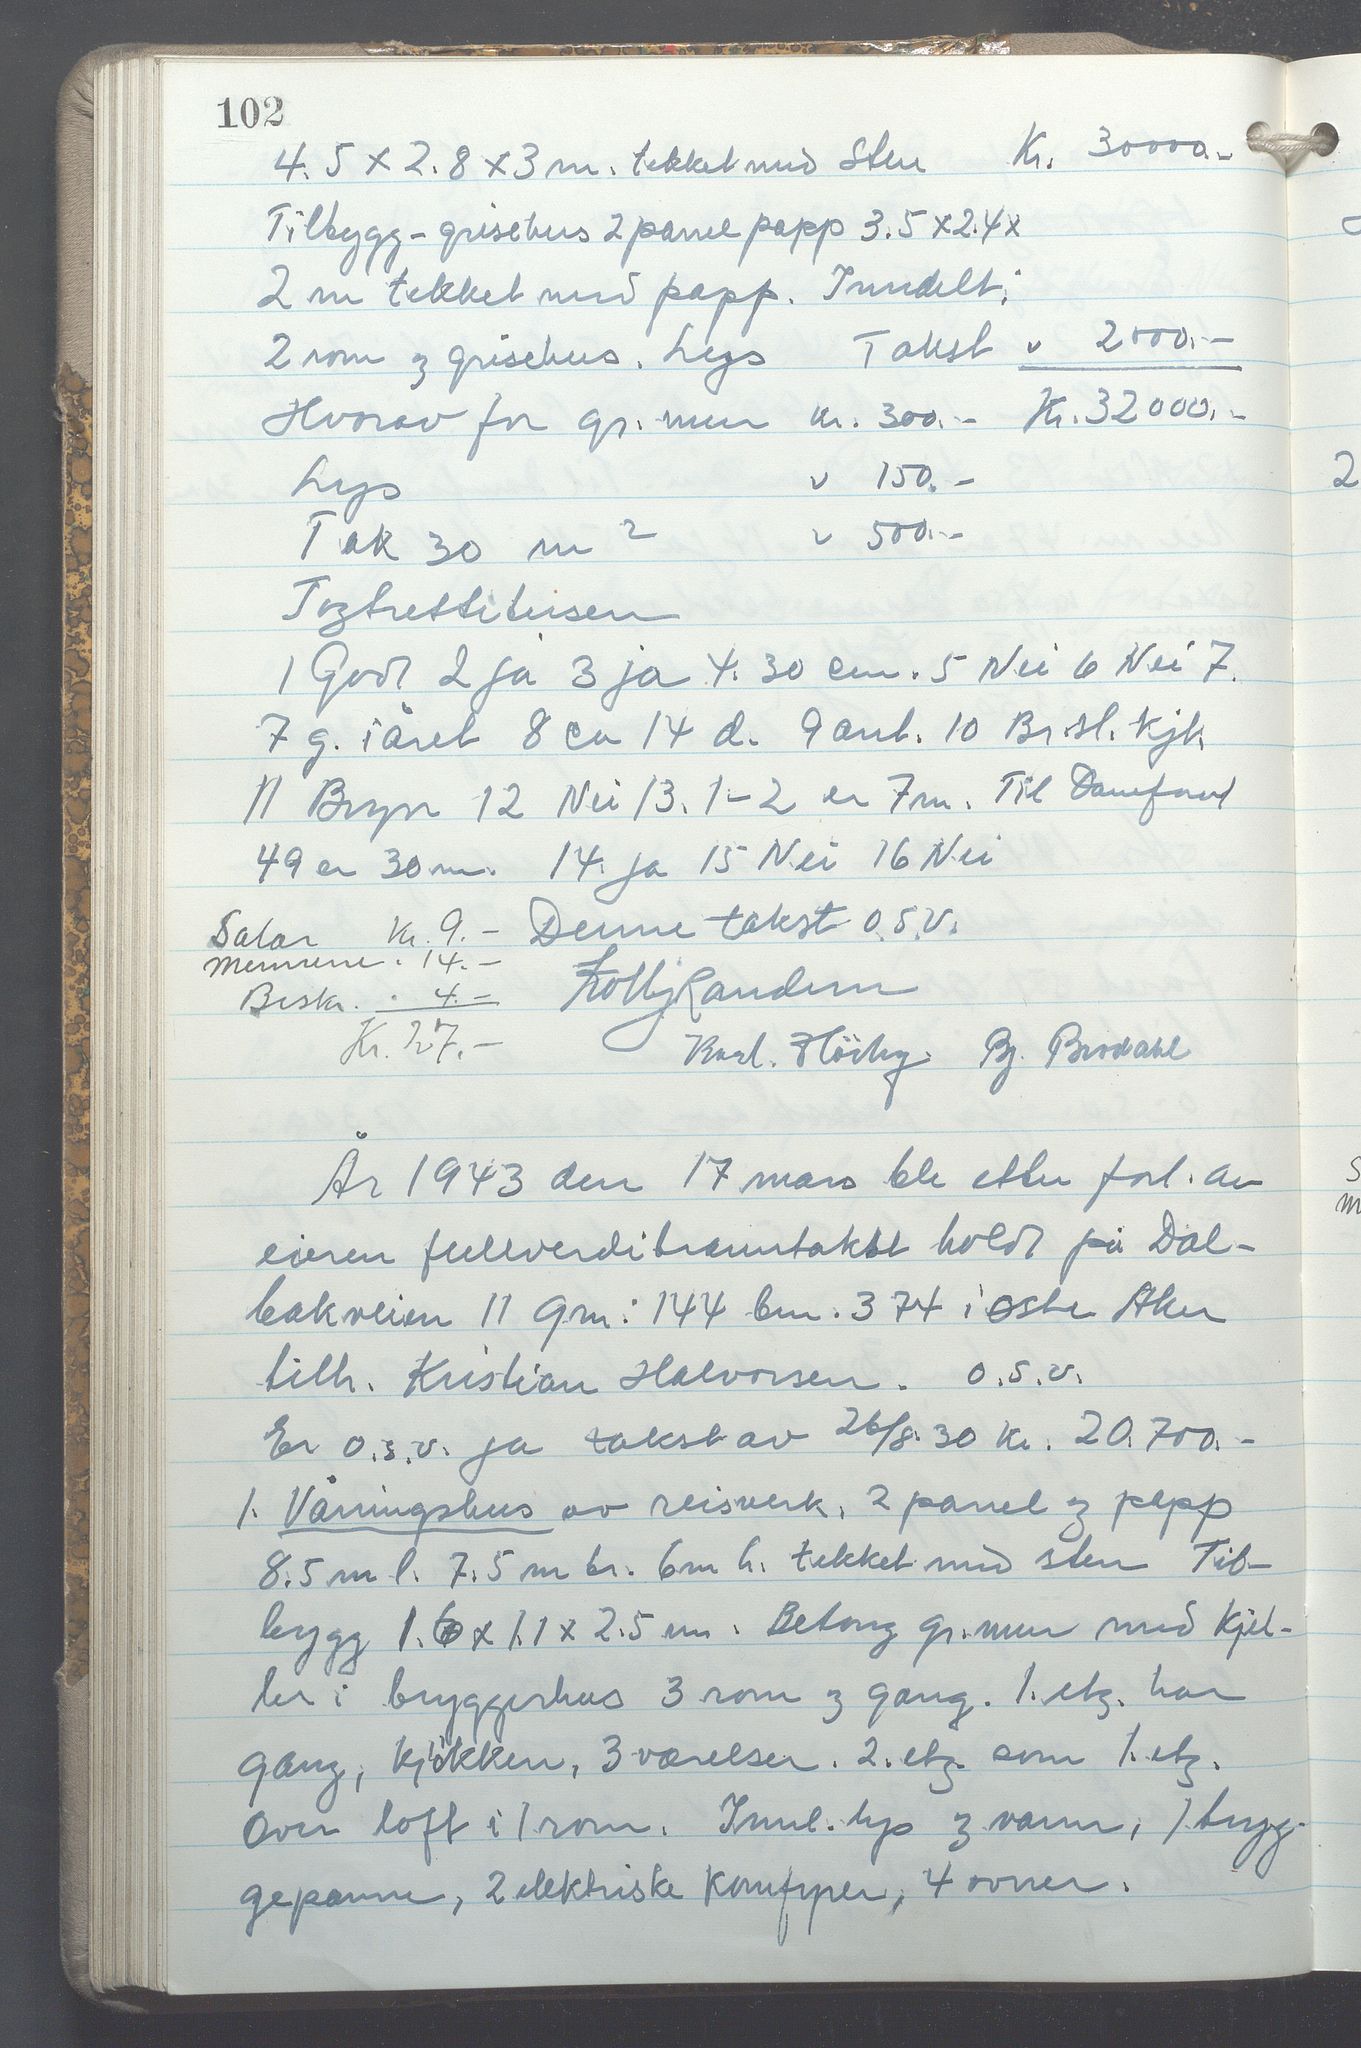 102
4.5 x 2.8 x 3 m. tekket med sten Kr. 30000.-
Tilbygg - grisehus 2 panel papp 3.5 x 2.4 x
2 m tekket med papp. Inndelt i
2 rom og grisehus. Lys Takst " 2000.-
Hvorav for gr. mur kr. 300.- Kr. 32000.-
Lys " 150.-
Tak 30 m2 " 500.-
Togtrettitusen
1 God 2 ja 3 ja 4. 30 cm. 5 Nei 6 Nei 7.
7 g. i året 8 ca 14 d. 9 ant. 10 Br.st. kjk
11 Bryn 12 Nei 13. 1-2 er 7 m. Til Damefaret
49 er 30 m. 14. ja 15 Nei 16 Nei
Salær Kr. 9.- Denne takst o.s.v.
Mennene " 14.-
Beskr. " 4.-
Kr. 27.-
Karl. Höiby. Bj. Brodahl
År 1943 den 17 mars ble etter forl. av
eieren fullverdibranntakst holdt på Dal-
bakveien 11 gnr: 144 bnr. 374 i östre Aker
tilh. Kristian Halvorsen. o.s.v.
Er o.s.v. ja takst av 26/8.30 kr. 20.700.-
1. Våningshus av reisverk, 2 panel og papp
8.5 m l. 7.5 m br. 6 m h. tekket med sten Til-
bygg 1.6 x 1.1 x 2.5 m. Betong gr. mur med kjel-
ler i bryggerhus 3 rom og gang. 1. etg. har
gang, kjökken, 3 værelser. 2. etg. som 1. etg.
Over loft i 1 rom. Innl. lys og vann, 1 bryg-
gepanne, 2 elektriske komfyrer, 4 ovner.